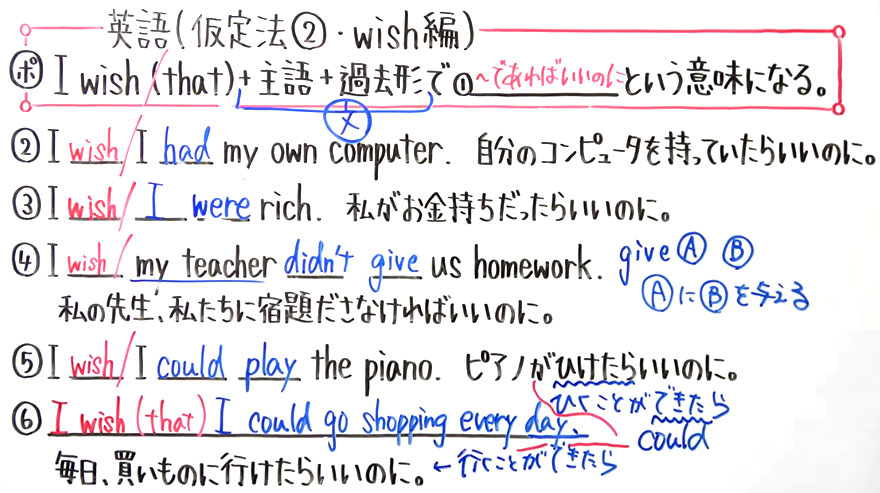 英語(仮定法②・wish編)
ポ I wish (that)+主語+過去形で①〜であればいいのにという意味になる。
文
② I wish / I had my own computer. 自分のコンピュータを持っていたらいいのに。
③ I wish / I were rich. 私がお金持ちだったらいいのに。
④ I wish / my teacher didn't give us homework. give Ⓐ Ⓑ
ⒶにⒷを与える
私の先生、私たちに宿題ださなければいいのに。
⑤ I wish / I could play the piano. ピアノがひけたらいいのに。
ひくことができたら
⑥ I wish (that) I could go shopping every day.
could
毎日、買いものに行けたらいいのに。←行くことができたら